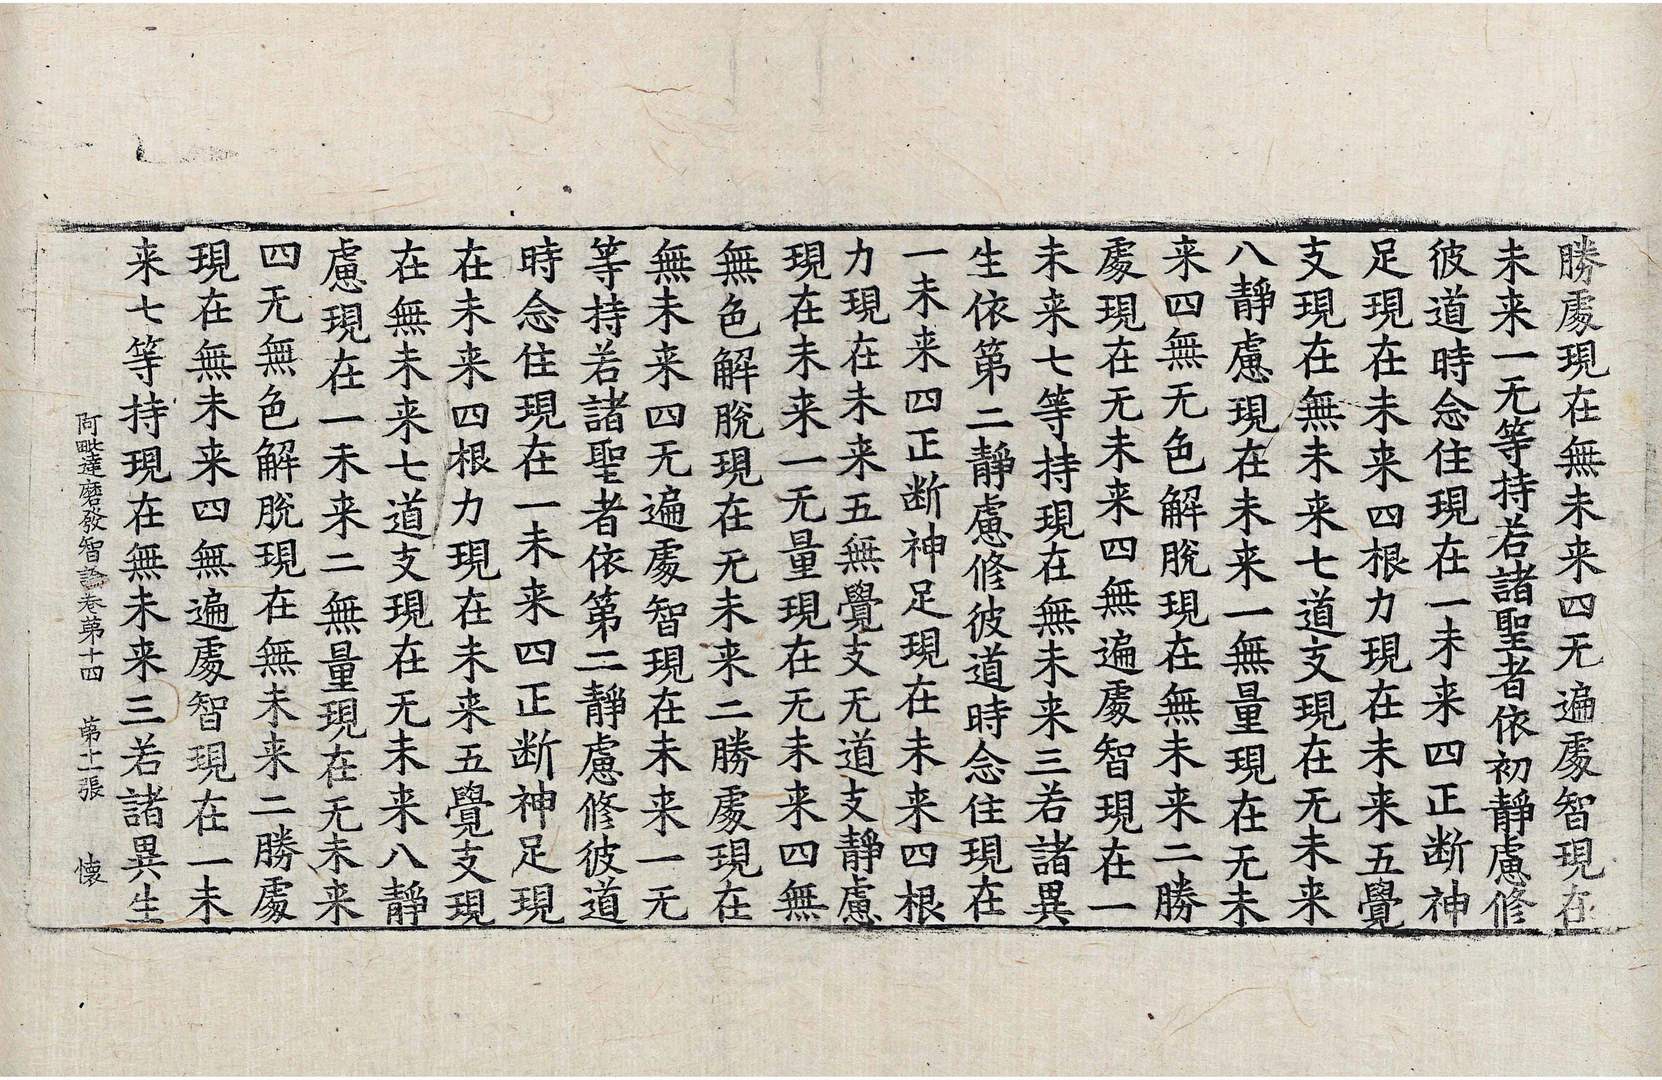 勝處現在無未来四无遍處智現在
未来一无等持若諸聖者依初靜慮修
彼道時念住現在一未来四正断神
足現在未来四根力現在未来五覺
支現在無未来七道支現在无未来
八靜慮現在未来一無量現在无未
来四無无色解脫現在無未来二勝
處現在无未来四無遍處智現在一
未来七等持現在無未来三若諸異
生依第二靜慮修彼道時念住現在
一未来四正断神足現在未来四根
力現在未来五無覺支无道支靜慮
現在未来一无量現在无未来四無
無色解脫現在无未来二勝處現在
無未来四无遍處智現在未来一无
等持若諸聖者依第二靜慮修彼道
時念住現在一未来四正断神足現
在未来四根力現在未来五覺支現
在無未来七道支現在无未来八靜
慮現在一未来二無量現在无未来
四无無色解脫現在無未来二勝處
現在無未来四無遍處智現在一未
来七等持現在無未来三若諸異生
阿毗達磨發智論卷苐十四 苐十一張 懐